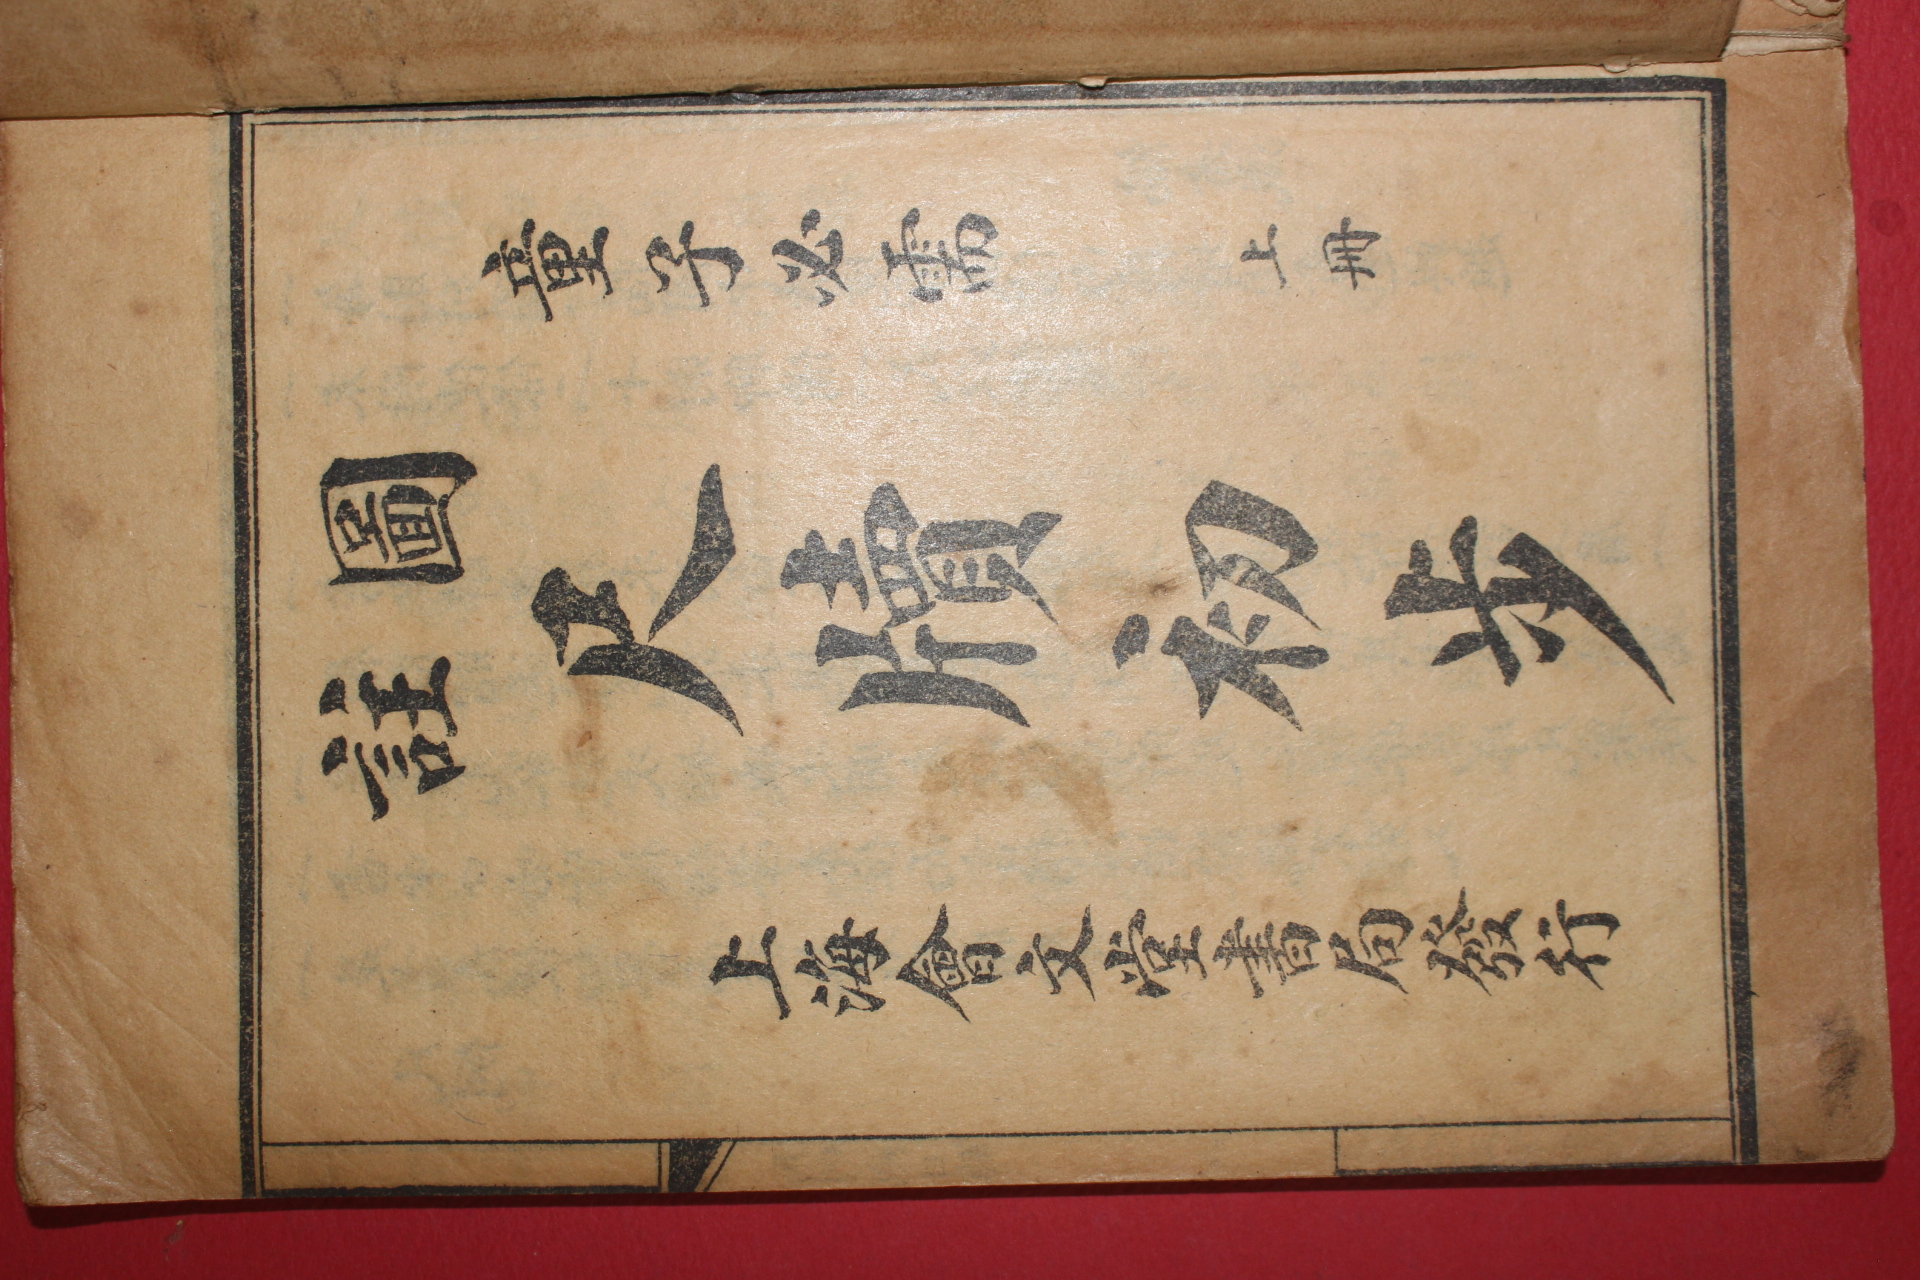 童子必需 上冊
圖註
尺牘初步
上海會文堂書局發行